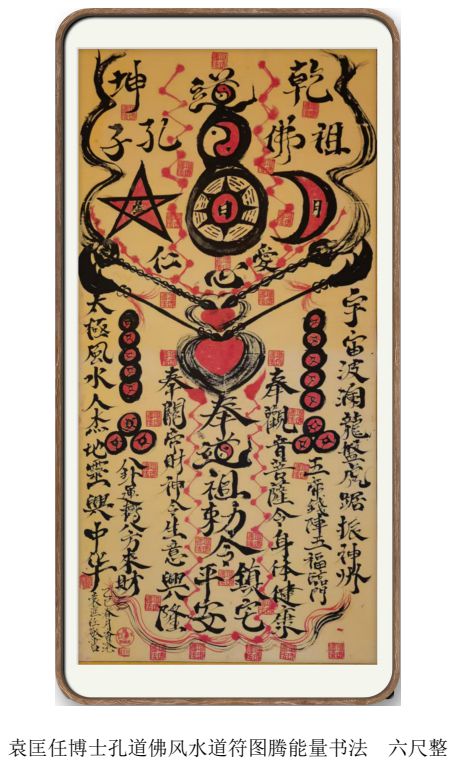 乾 道 坤
祖 佛 孔 子
月 日
愛 心 仁
宇宙波澜龍盤虎踞振神州
五帝錢陣五福臨門
奉觀音菩薩令身体健康
奉道祖勅令鎮宅平安
奉關公財神令生意興隆
鈴運轉八方来財
太極風水人杰地靈興中华
袁匡任博士孔道佛风水道符图腾能量书法 六尺整